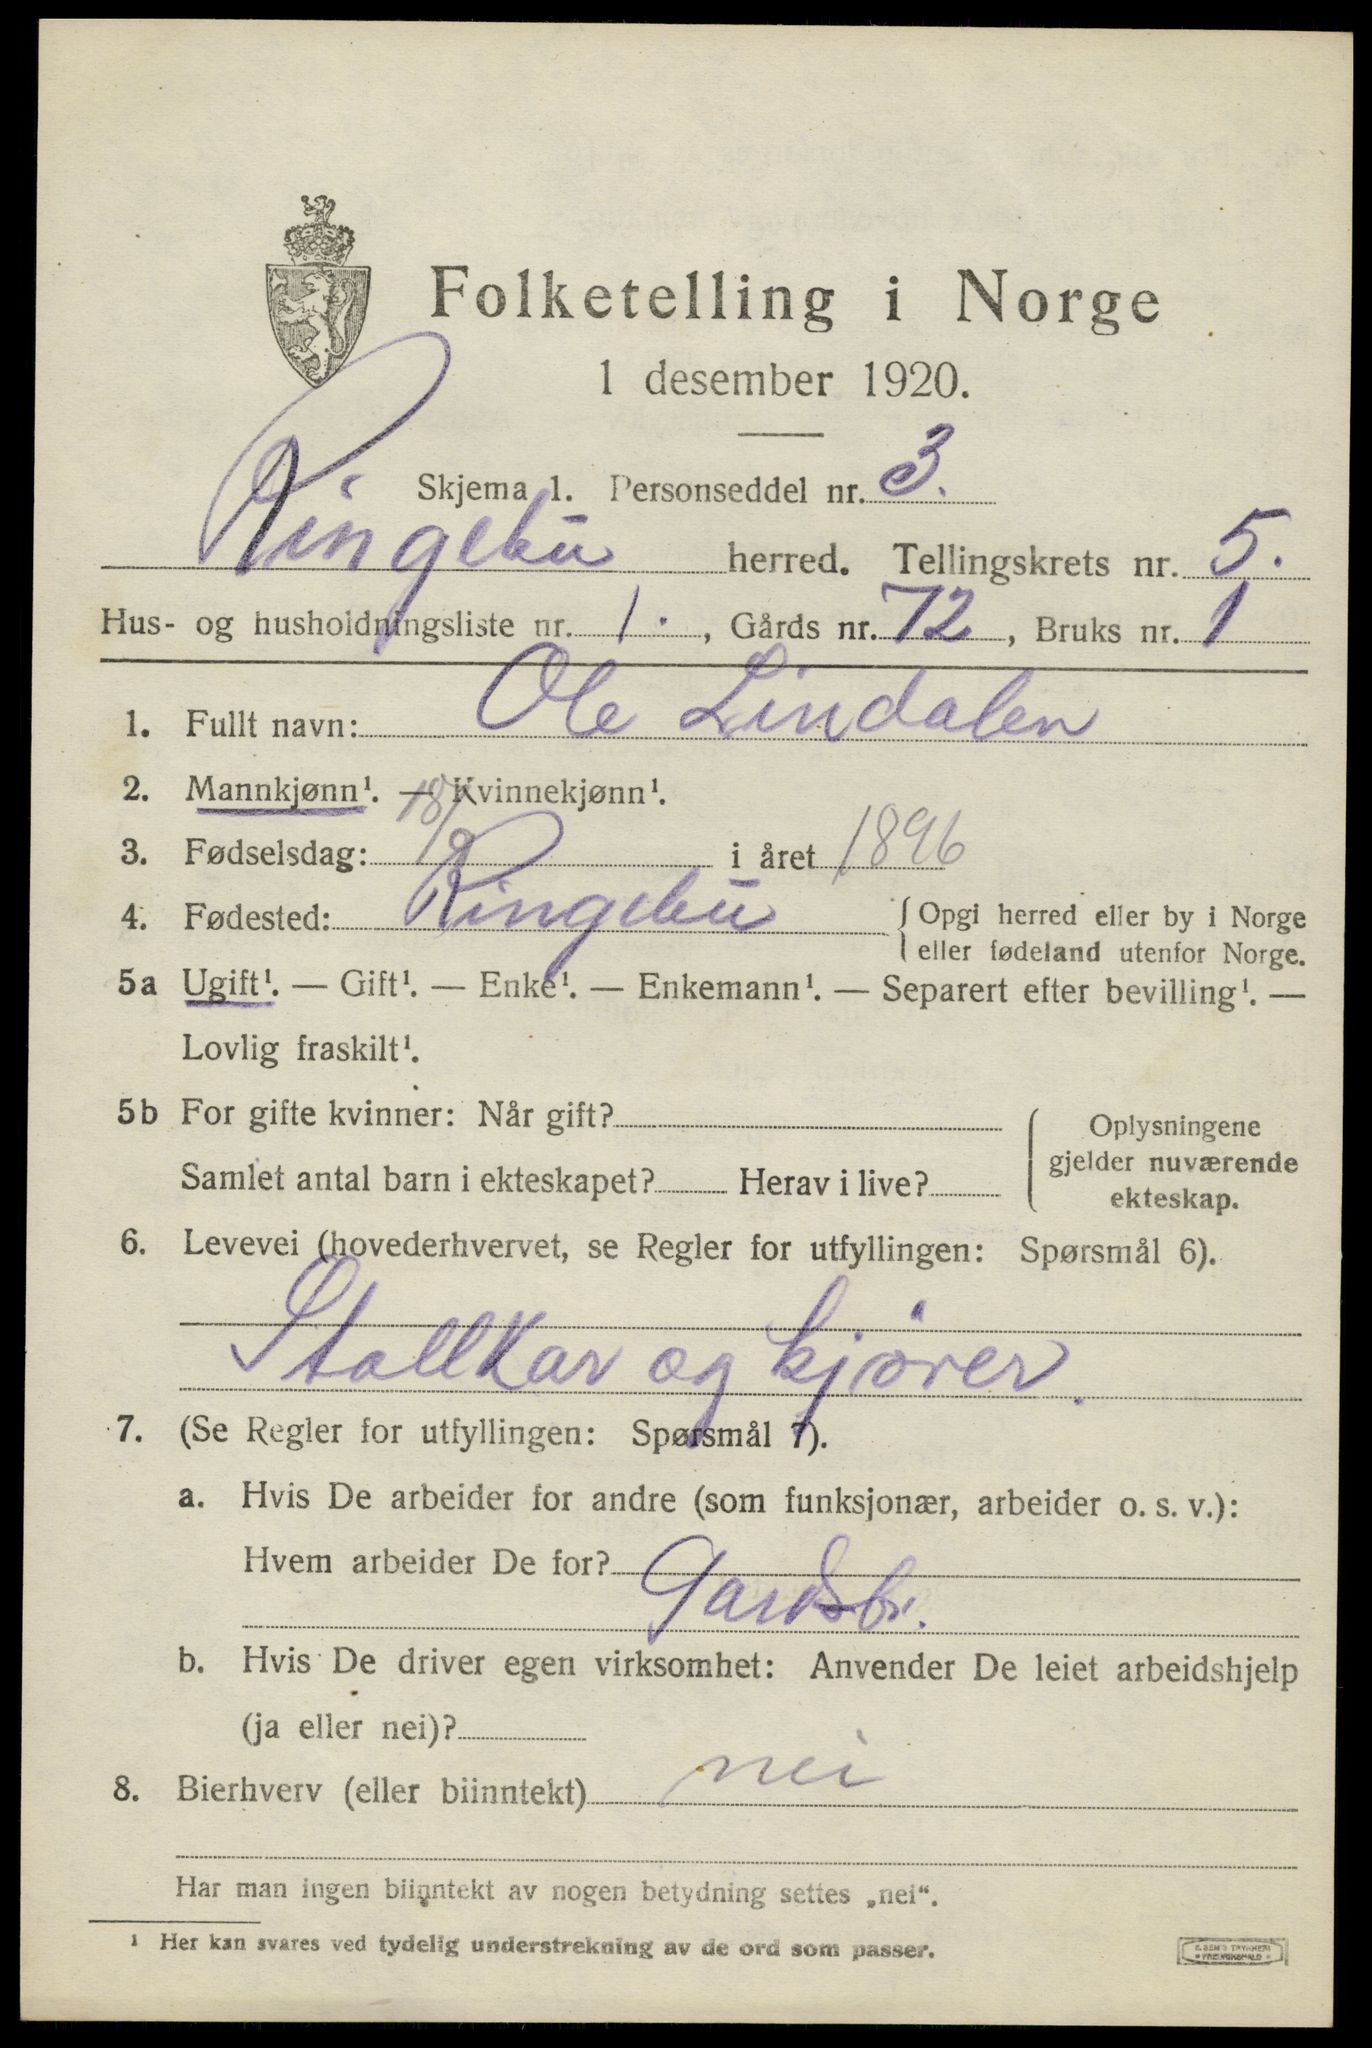 Folketelling i Norge
1 desember 1920.
Skjema 1. Personseddel nr. 3.
Ringebu herred. Tellingskrets nr. 5.
Hus- og husholdningsliste nr. 1., Gårds nr. 72, Bruks nr. 1
1. Fullt navn: Ole Lindalen
2. Mannkjønn¹. — Kvinnekjønn¹.
3. Fødselsdag: 18/9 i året 1896
4. Fødested: Ringebu { Opgi herred eller by i Norge
eller fødeland utenfor Norge.
5a Ugift¹. — Gift¹. — Enke¹. — Enkemann¹. — Separert efter bevilling¹. —
Lovlig fraskilt¹.
5b For gifte kvinner: Når gift?
Samlet antal barn i ekteskapet? Herav i live?
Oplysningene
gjelder nuværende
ekteskap.
6. Levevei (hovederhvervet, se Regler for utfyllingen: Spørsmål 6).
Stallkar og kjører.
7. (Se Regler for utfyllingen: Spørsmål 7).
a. Hvis De arbeider for andre (som funksjonær, arbeider o. s. v.):
Hvem arbeider De for?
Gardsbr.
b. Hvis De driver egen virksomhet: Anvender De leiet arbeidshjelp
(ja eller nei)?
8. Bierhverv (eller biinntekt) nei
Har man ingen biinntekt av nogen betydning settes „nei“.
¹ Her kan svares ved tydelig understrekning av de ord som passer.